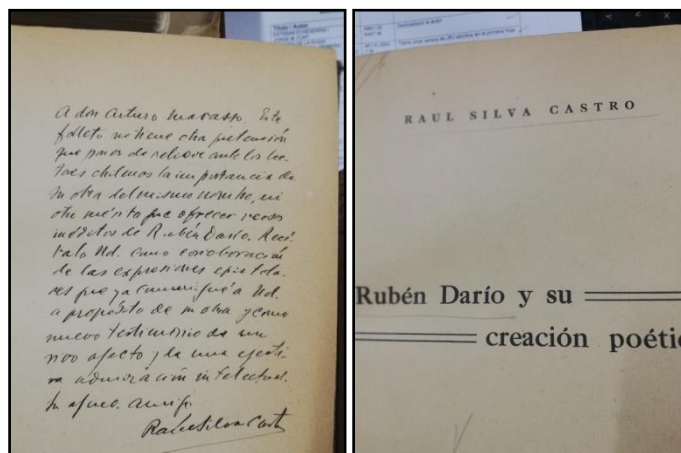 A don Arturo Marasso. Este
folleto no tiene otra pretensión
que poner de relieve ante los lec-
tores chilenos la importancia de
su obra del mismo nombre, ni
otro mérito que ofrecer versos
inéditos de Rubén Darío. Recí-
balo Ud. como corroboración
de las expresiones epistola-
res que ya comuniqué a Ud.
a propósito de su obra y como
nuevo testimonio de un
vivo afecto y de una
admiración intelectual.
Su afmo. amigo.
Raúl Silva Castro
RAUL SILVA CASTRO
Rubén Darío y su
creación poétic